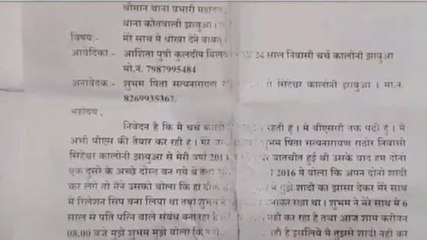 श्रीमान थाना प्रभारी महोदय
थाना कोतवाली झाबुआ।
विषय:-
मेरे साथ में धोखा देने
आवेदिका:-
आशिता पुत्री कुलदीप 24 साल निवासी चर्च कालोनी झाबुआ
मो.नं. 7987995484
अनावेदक:-
शुभम पिता सत्यनारायण सिद्देश्वर कालोनी झाबुआ । मो.नं.
8269935362.
महोदय
निवेदन है कि मै चर्च रहती हूं । मै बीएससी तक पढी हूं । मै
अभी पीएस की तैयार कर रही है। मेरे शुभम पिता सत्यनारायण राठोर निवासी
सिद्देश्वर कालोनी झाबुआ से मेरी वर्षा बातचीत हुई थी उसके बाद हम दोनो
एक दूसरे के अच्छे दोस्त बन गये थे 2016 मे बोला कि अपन दोनो शादी
कर लेगे तो मैने उसको बोला कि हा मुझे शादी का झासा देकर मेरे साथ
में रिलेशन सिप बना लिया था तथा शुभम रखा था। शुभम ने मेरे साथ मे 6
साल से पति पत्नि वाले संबध बना नही कर रहा है तथा आज शाम करीबन
08.00 बजे मुझे शुभम बोला कि है इसलिये मे तुझसे शादी नही कर